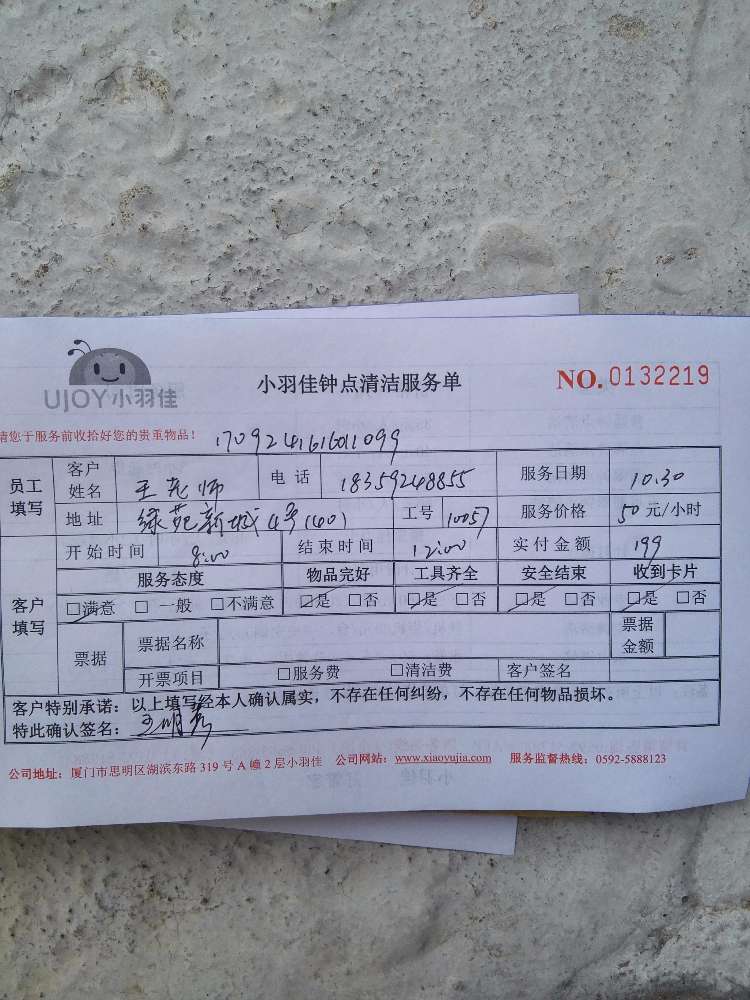 UJOY小羽佳
小羽佳钟点清洁服务单
NO. 0132219
请您于服务前收拾好您的贵重物品！
1709241616011099
员工填写 客户姓名 王老师 电话 18359248855 服务日期 10.30
地址 绿苑新城4号(401) 工号 10057 服务价格 50元/小时
客户填写 开始时间 8:00 结束时间 12:00 实付金额 199
服务态度 物品完好 工具齐全 安全结束 收到卡片
□满意 □一般 □不满意 □是 □否 □是 □否 □是 □否 □是 □否
票据 票据名称 票据金额
开票项目 □服务费 □清洁费 客户签名
客户特别承诺：以上填写经本人确认属实，不存在任何纠纷，不存在任何物品损坏。
特此确认签名：
公司地址：厦门市思明区湖滨东路319号A幢2层小羽佳 公司网站：www.xiaoyujia.com 服务监督热线：0592-5888123